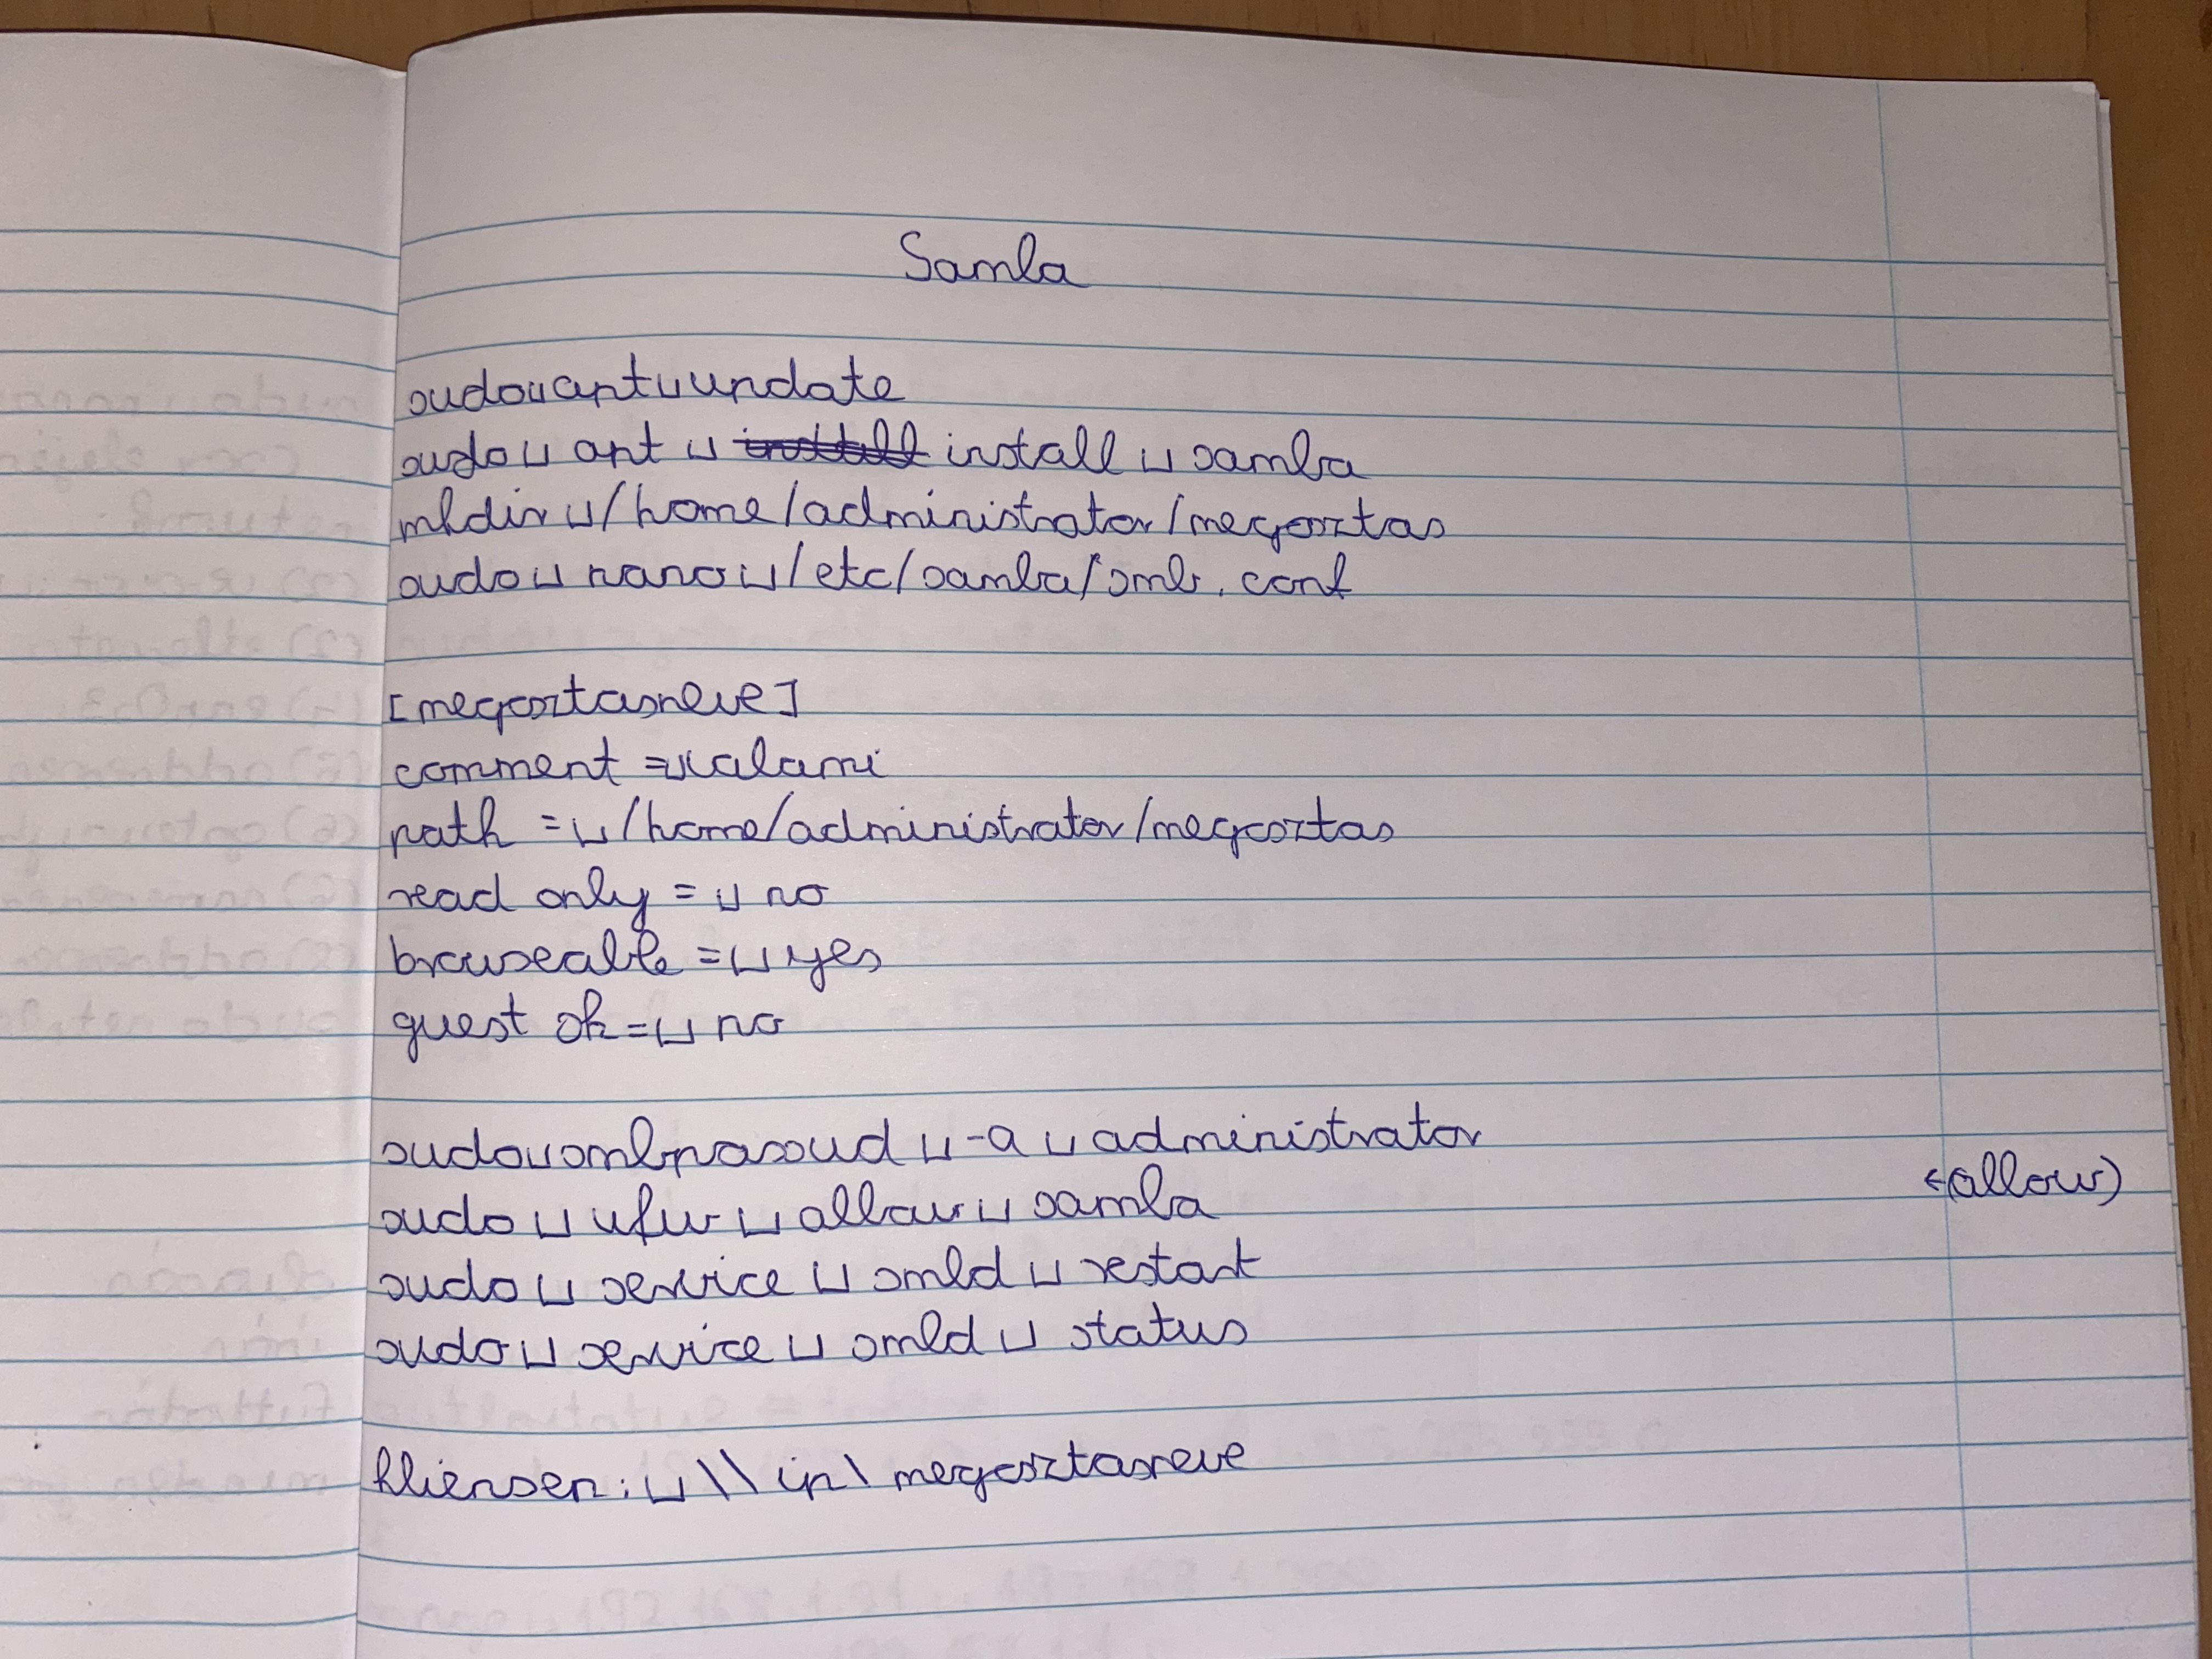 Samba
sudo␣apt␣update
sudo␣apt␣install␣samba
mkdir␣/home/administrator/megosztas
sudo␣nano␣/etc/samba/smb.conf
[megosztasneve]
comment =␣valami
path =␣/home/administrator/megosztas
read only =␣no
browseable =␣yes
guest ok =␣no
sudo␣smbpasswd␣-a␣administrator
sudo␣ufw␣allow␣samba (allow)
sudo␣service␣smbd␣restart
sudo␣service␣smbd␣status
kliensen:␣\\ip\megosztasneve